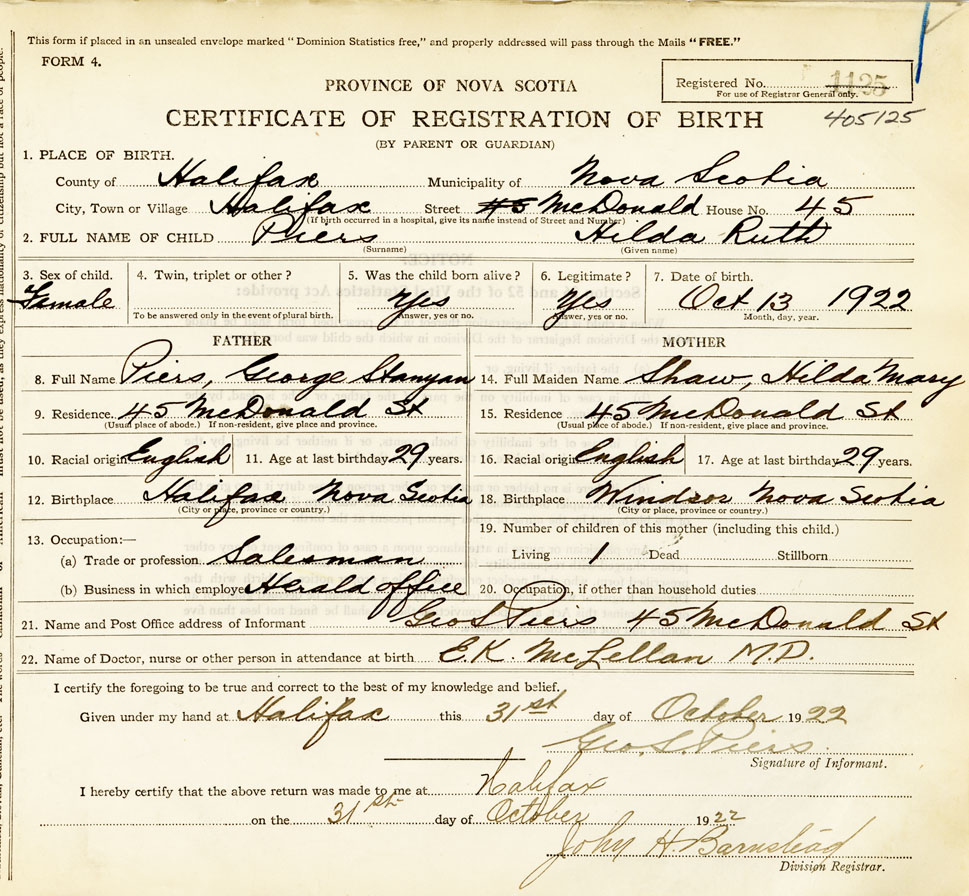 This form if placed in an unsealed envelope marked "Dominion Statistics free," and properly addressed will pass through the Mails "FREE."
FORM 4.
PROVINCE OF NOVA SCOTIA
Registered No. 1125
For use of Registrar General only.
405125
CERTIFICATE OF REGISTRATION OF BIRTH
(BY PARENT OR GUARDIAN)
1. PLACE OF BIRTH.
County of Halifax Municipality of Nova Scotia
City, Town or Village Halifax Street #5 McDonald House No. 45
(If birth occurred in a hospital, give its name instead of Street and Number)
2. FULL NAME OF CHILD Piers Hilda Ruth
(Surname) (Given name)
3. Sex of child. 4. Twin, triplet or other? 5. Was the child born alive? 6. Legitimate? 7. Date of birth.
Famale Yes Yes Oct 13 1922
To be answered only in the event of plural birth. Answer, yes or no. Answer, yes or no. Month, day, year.
FATHER MOTHER
8. Full Name Piers, George Stanyan 14. Full Maiden Name Shaw, Hilda Mary
9. Residence. 45 McDonald St 15. Residence 45 McDonald St
(Usual place of abode.) If non-resident, give place and province. (Usual place of abode.) If non-resident, give place and province.
10. Racial origin English 11. Age at last birthday 29 years. 16. Racial origin English 17. Age at last birthday 29 years.
12. Birthplace Halifax Nova Scotia 18. Birthplace Windsor Nova Scotia
(City or place, province or country.) (City or place, province or country.)
13. Occupation:— 19. Number of children of this mother (including this child.)
(a) Trade or profession Salesman Living 1 Dead Stillborn
(b) Business in which employe Herald office 20. Occupation, if other than household duties
21. Name and Post Office address of Informant Geo S Piers 45 McDonald St
22. Name of Doctor, nurse or other person in attendance at birth E.K. McLellan M.D.
I certify the foregoing to be true and correct to the best of my knowledge and belief.
Given under my hand at Halifax this 31st day of October 1922
Geo S. Piers
Signature of Informant.
I hereby certify that the above return was made to me at Halifax
on the 31st day of October 1922
John H. Barnstead
Division Registrar.